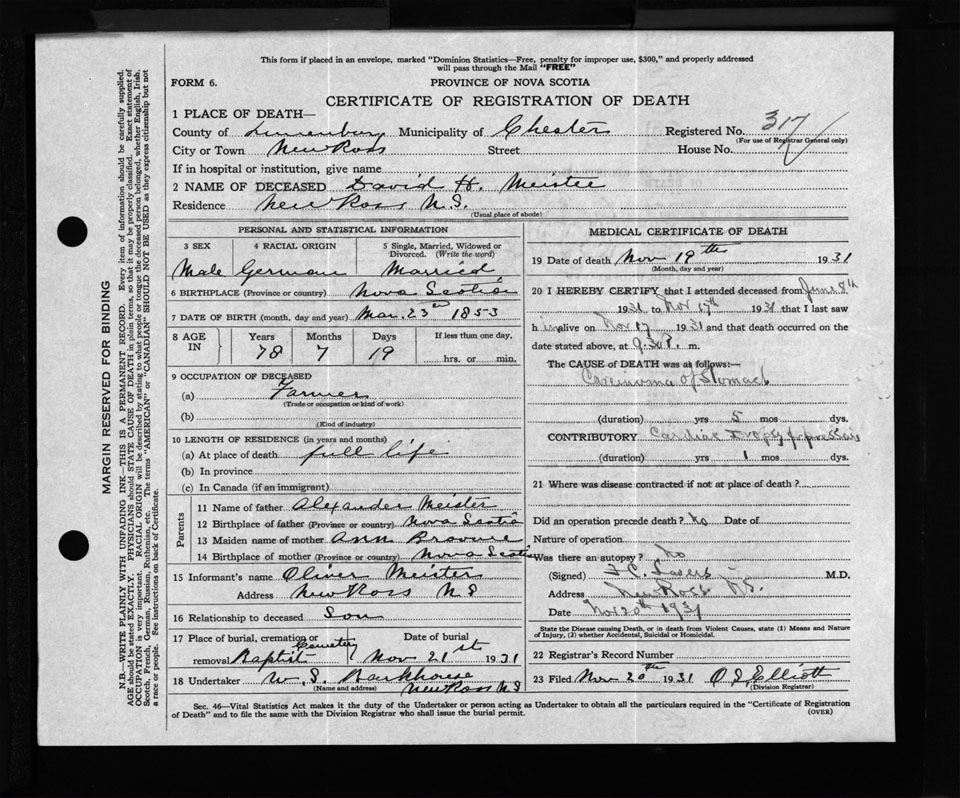 This form if placed in an envelope, marked "Dominion Statistics—Free, penalty for improper use, $300," and properly addressed
will pass through the Mail "FREE"
FORM 6.
PROVINCE OF NOVA SCOTIA
CERTIFICATE OF REGISTRATION OF DEATH
1 PLACE OF DEATH—
County of Lunenburg Municipality of Chester Registered No. 317
(For use of Registrar General only)
City or Town New Ross Street House No.
If in hospital or institution, give name
2 NAME OF DECEASED David H. Meister
Residence New Ross N.S.
(Usual place of abode)
PERSONAL AND STATISTICAL INFORMATION
3 SEX 4 RACIAL ORIGIN 5 Single, Married, Widowed or
Divorced. (Write the word)
Male German Married
6 BIRTHPLACE (Province or country) Nova Scotia
7 DATE OF BIRTH (month, day and year) Mar. 23rd 1853
8 AGE IN Years Months Days If less than one day,
78 7 19 hrs. or min.
9 OCCUPATION OF DECEASED
(a) Farmer
(Trade or occupation or kind of work)
(b)
(Kind of industry)
10 LENGTH OF RESIDENCE (in years and months)
(a) At place of death full life
(b) In province
(c) In Canada (if an immigrant)
Parents
11 Name of father Alexander Meister
12 Birthplace of father (Province or country) Nova Scotia
13 Maiden name of mother Ann
14 Birthplace of mother (Province or country) Nova Scotia
15 Informant's name Oliver Meister
Address New Ross N S
16 Relationship to deceased Son
17 Place of burial, cremation or Date of burial
removal Baptist Cemetery Nov 21st 1931
18 Undertaker W. S. Barkhouse
(Name and address) New Ross N S
MEDICAL CERTIFICATE OF DEATH
19 Date of death Nov 19th 1931
(Month, day and year)
20 I HEREBY CERTIFY that I attended deceased from June 8th
1931 to Nov 17th 1931 that I last saw
him alive on Nov 17 1931 and that death occurred on the
date stated above, at 9.30 P. m.
The CAUSE OF DEATH was as follows:
Carcinoma of Stomach
(duration) yrs 5 mos dys.
CONTRIBUTORY Cardiac
(duration) yrs 1 mos dys.
21 Where was disease contracted if not at place of death?
Did an operation precede death? No Date of
Nature of operation
Was there an autopsy? No
(Signed) M.D.
Address New Ross N.S.
Date Nov 20th 1931
State the Disease causing Death, or in death from Violent Causes, state (1) Means and Nature
of Injury, (2) whether Accidental, Suicidal or Homicidal.
22 Registrar's Record Number
23 Filed Nov 20th 1931 O S Elliott
(Division Registrar)
Sec. 46—Vital Statistics Act makes it the duty of the Undertaker or person acting as Undertaker to obtain all the particulars required in the "Certificate of Registration
of Death" and to file the same with the Division Registrar who shall issue the burial permit.
(OVER)
MARGIN RESERVED FOR BINDING
N.B.—WRITE PLAINLY WITH UNFADING INK—THIS IS A PERMANENT RECORD. Every item of information should be carefully supplied.
AGE should be stated EXACTLY. PHYSICIANS should STATE CAUSE OF DEATH in plain terms, so that it may be properly classified. Exact statement of
OCCUPATION is very important. RACIAL ORIGIN will be described by stating to what people or tongue the deceased person belonged, whether English, Irish,
Scotch, French, German, Russian, Ruthenian, etc. The terms "AMERICAN" or "CANADIAN" SHOULD NOT BE USED as they express citizenship but not
a race or people. See instructions on back of Certificate.